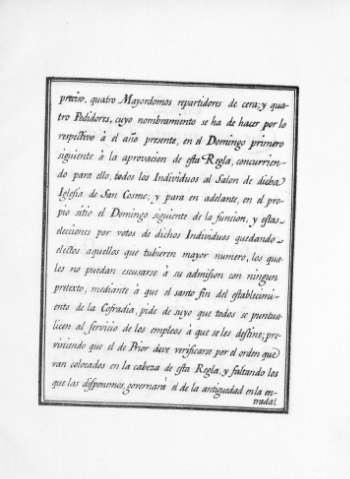 preciso, quatro Mayordomos repartidores de cera; y qua
tro Pedidores, cuyo nombramiento se ha de hacer por lo
respectivo á el año presente, en el Domingo primero
siguiente á la aprovacion de esta Regla, concurrien-
do para ello, todos los Individuos al Salon de dicha
Iglesia de San Cosme; y para en adelante, en el pro-
pio sitio el Domingo siguiente de la funcion, y estas
elecciones por votos de dichos Individuos quedando
electos aquellos que tubieren mayor numero, los qua-
les no puedan escusarse á su admision con ningun
pretexto, mediante á que el santo fin del establecimi-
ento de la Cofradia, pide de suyo que todos se puntua-
licen al servicio de los empleos á que se les destine; pre-
viniendo que el de Prior deve verificarse por el orden que
van colocados en la cabeza de esta Regla, y faltando los
que las disponemos, governará el de la antiguedad en la en-
trada.